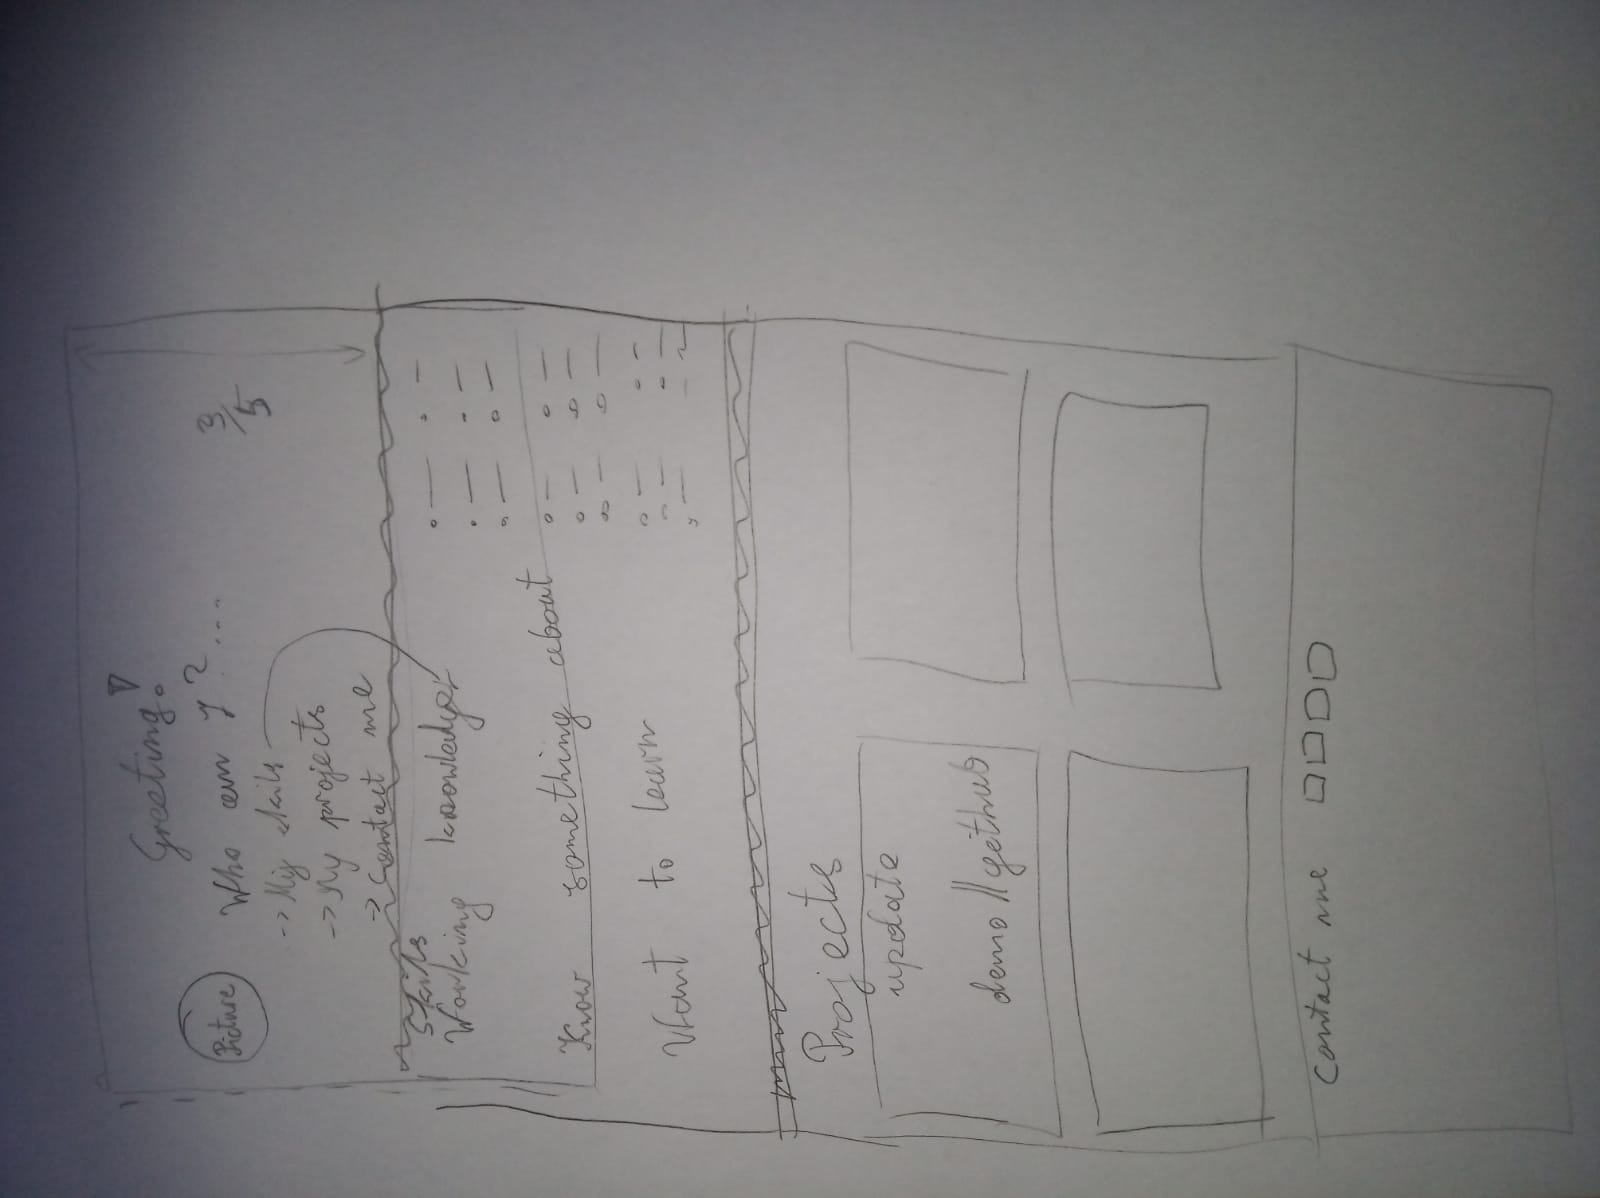 Greeting!
Picture
Who am I? ...
3/5
-> My skills
-> My projects
-> Contact me
Skills
Working knowledge
Know something about
Want to learn
Projects
update
demo // github
Contact me